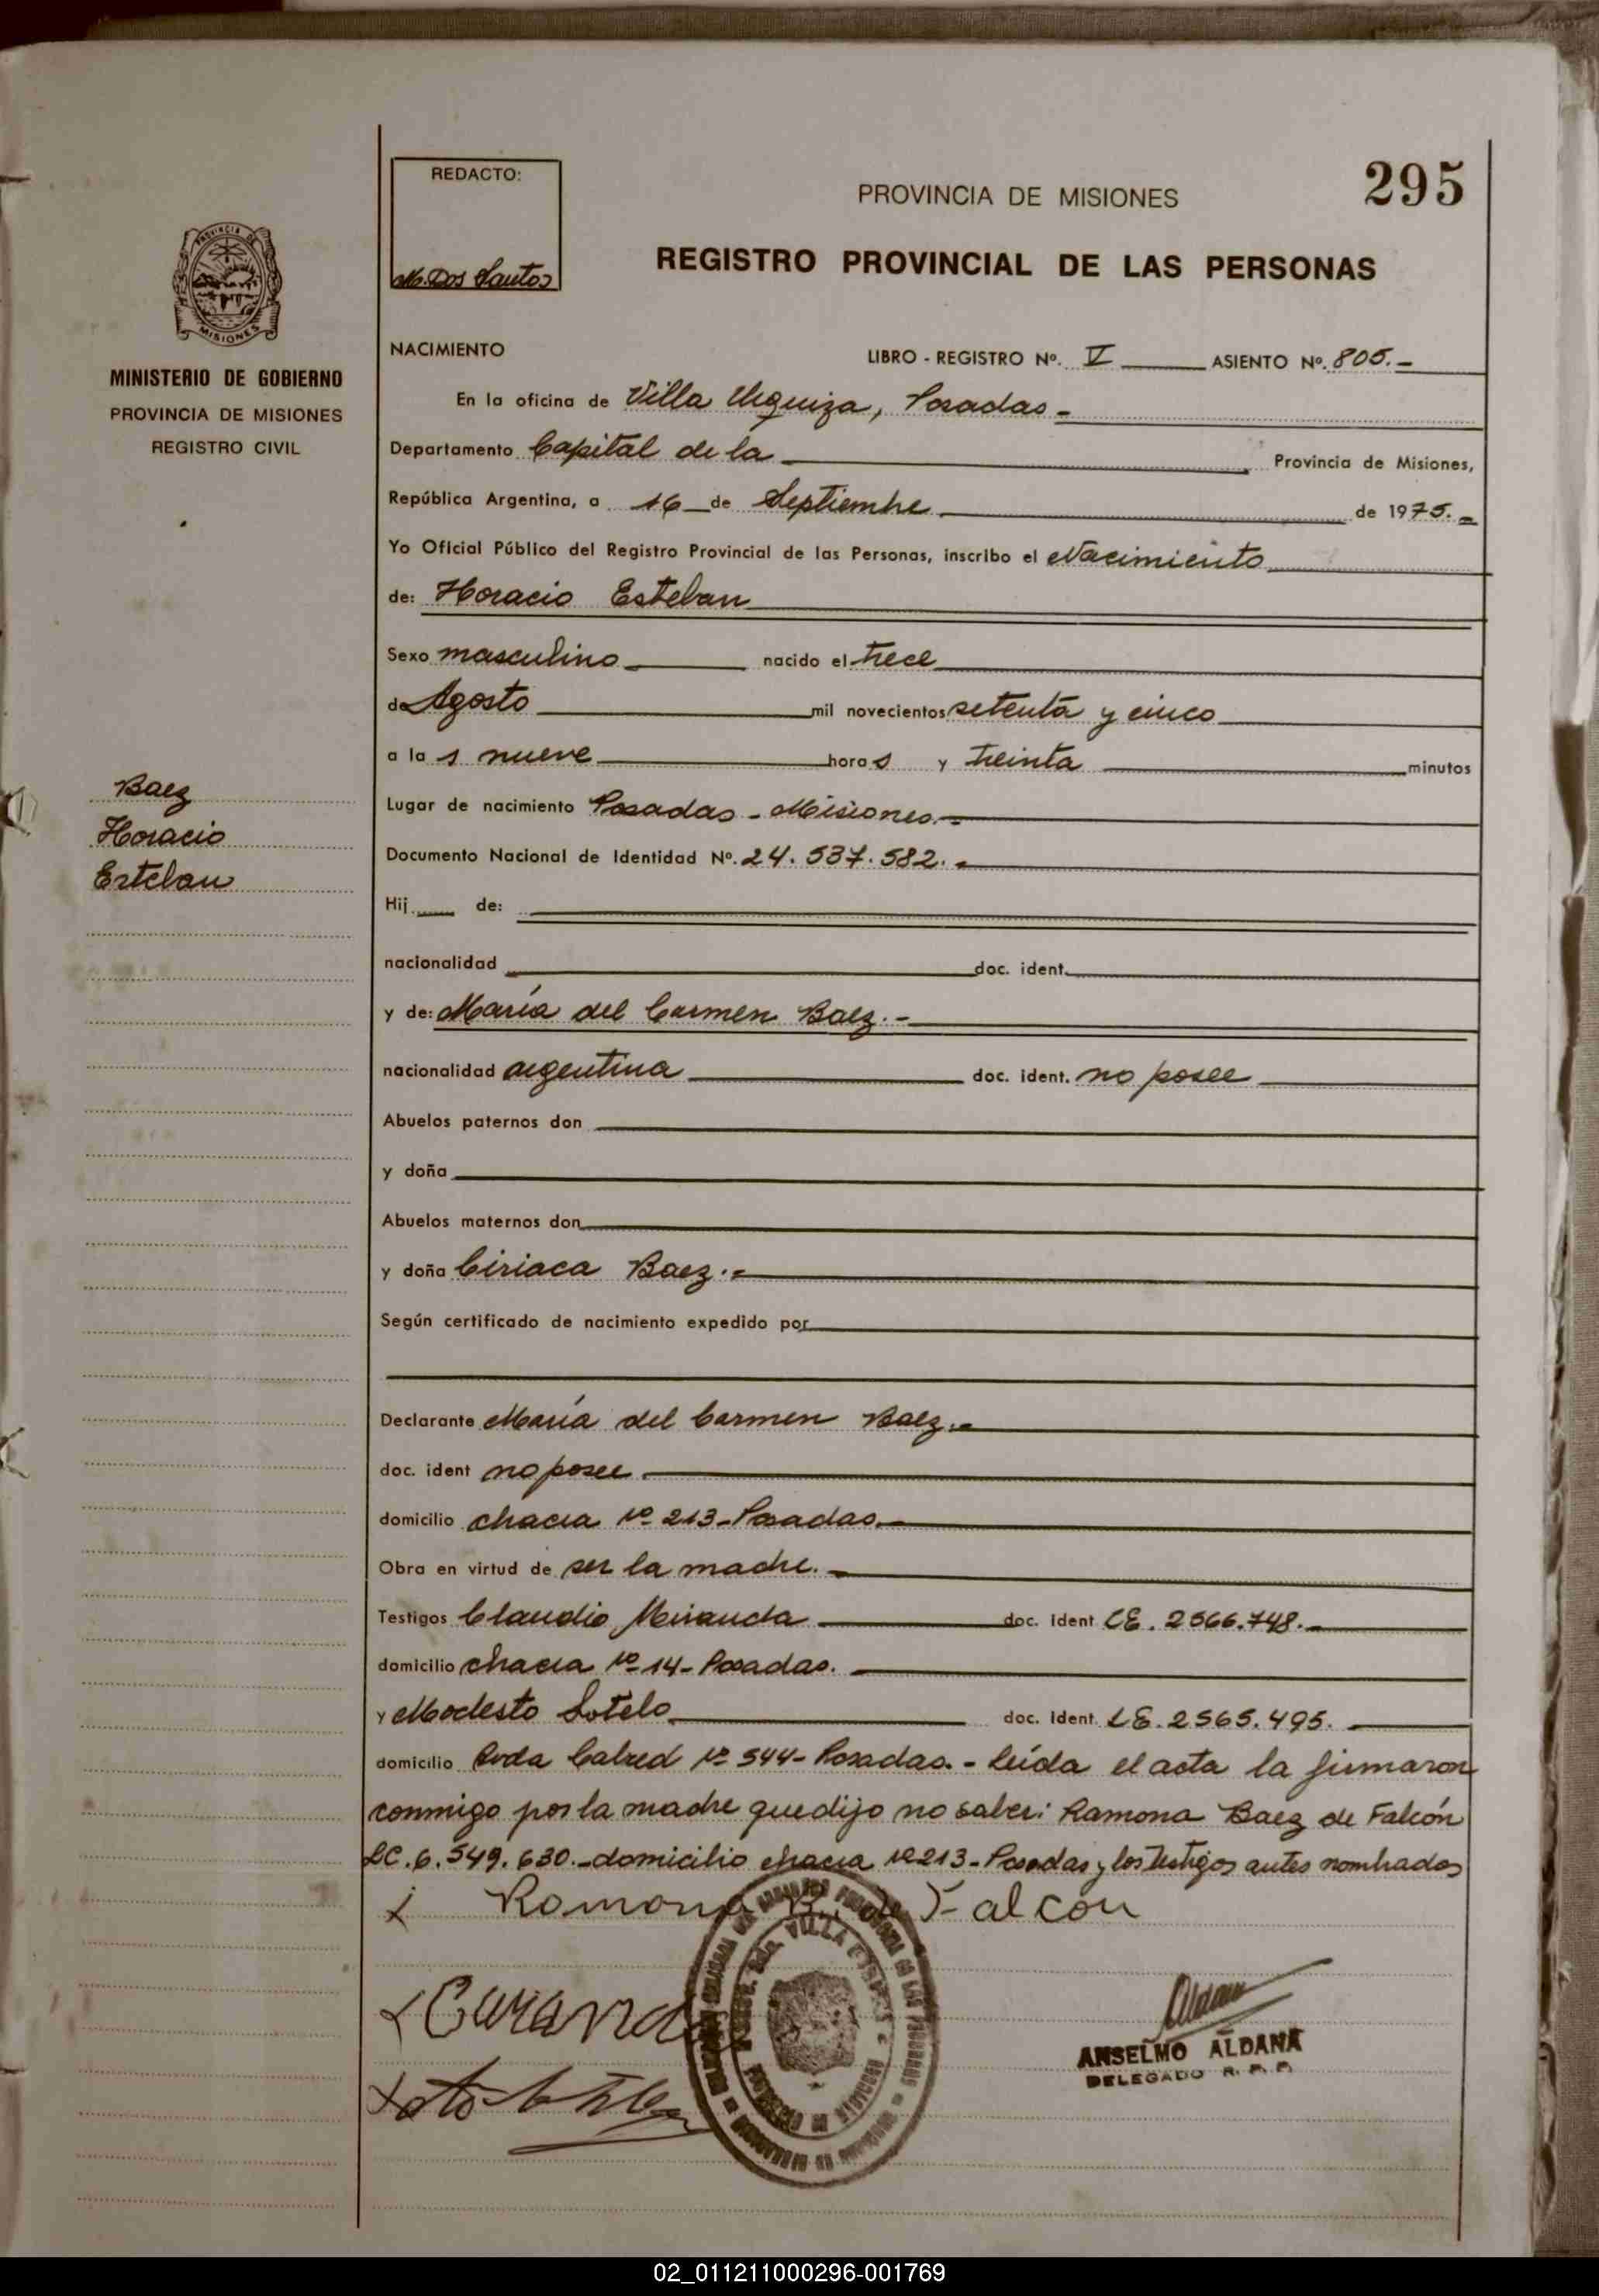 295
REDACTO:
M. Dos Santos
PROVINCIA DE MISIONES
REGISTRO PROVINCIAL DE LAS PERSONAS
PROVINCIA DE
MISIONES
MINISTERIO DE GOBIERNO
PROVINCIA DE MISIONES
REGISTRO CIVIL
NACIMIENTO
LIBRO - REGISTRO Nº. V ASIENTO Nº. 805.-
En la oficina de Villa Urquiza, Posadas -
Departamento Capital de la Provincia de Misiones,
República Argentina, a 16 de Septiembre de 1975.-
Yo Oficial Público del Registro Provincial de las Personas, inscribo el Nacimiento
de: Horacio Esteban
Sexo masculino nacido el trece
de Agosto mil novecientos setenta y cinco
a las nueve horas y treinta minutos
Baez
Horacio
Esteban
Lugar de nacimiento Posadas - Misiones.-
Documento Nacional de Identidad Nº. 24.537.582.-
Hij de:
nacionalidad doc. ident.
y de: María del Carmen Baez.-
nacionalidad argentina doc. ident. no posee
Abuelos paternos don
y doña
Abuelos maternos don
y doña Ciriaca Baez.-
Según certificado de nacimiento expedido por
Declarante María del Carmen Baez.-
doc. ident no posee
domicilio chacra nº 213-Posadas.-
Obra en virtud de ser la madre.-
Testigos Claudio Miranda doc. ident LE. 2566.748.-
domicilio chacra nº 14- Posadas.
y Modesto Sotelo doc. ident. LE. 2.565.495.
domicilio Avda nº 544- Posadas.- Leída el acta la firmaron
conmigo por la madre que dijo no saber: Ramona Baez de Falcón
LC. 6.549.630.-domicilio chacra nº 213-Posadas y los testigos antes nombrados
Ramona B. de Falcón
ANSELMO ALDANA
DELEGADO R. P. P.
02_011211000296-001769